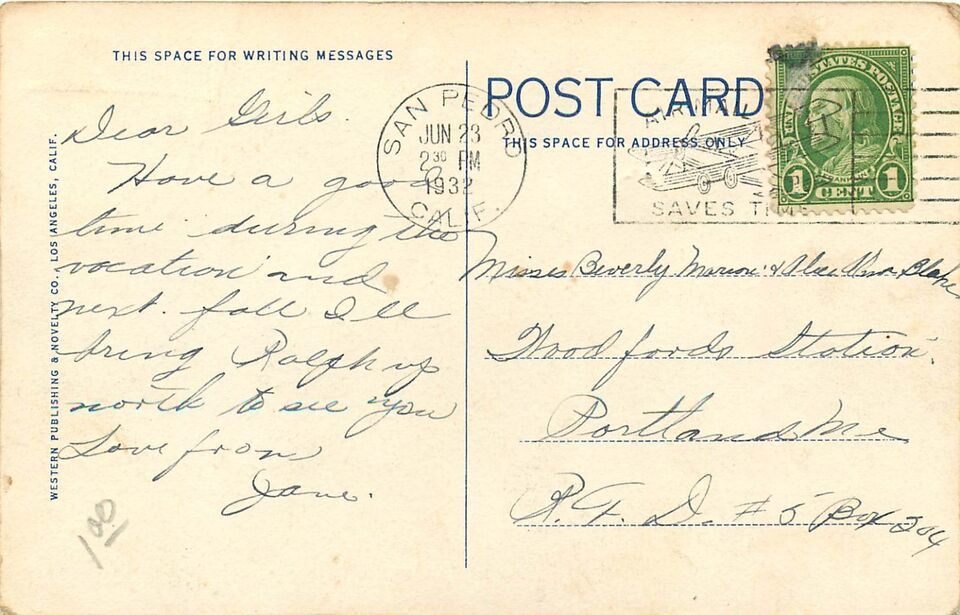 THIS SPACE FOR WRITING MESSAGES
Dear Girls.
Have a good
time during the
vacation and
next. fall I'll
bring Ralph up
north to see you
Love from
Jane.
1.00
WESTERN PUBLISHING & NOVELTY CO., LOS ANGELES, CALIF.
POST CARD
THIS SPACE FOR ADDRESS ONLY
SAN PEDRO
JUN 23
2 30 PM
1932
CALIF.
AIR MAIL
SAVES TIME
UNITED STATES POSTAGE
FRANKLIN
1 CENT 1
Misses Beverly Marion & Blake
Woodfords Station.
Portland Me
R. F. D. #5 Box 204